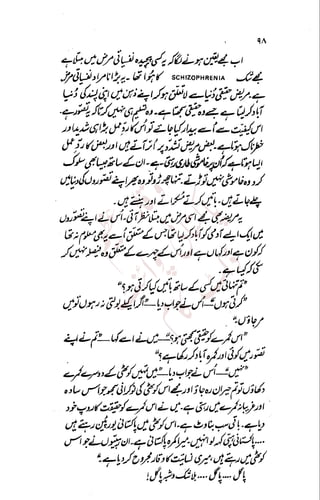 ۹۸
اب مجھے یقین ہونے لگا کہ یہ کسی پیچیدہ نفسیاتی مرض میں مبتلا ہے
مجھے شک SCHIZOPHRENIA کا ہوا تھا ۔ یہ بڑا نامراد نفسیاتی مرض
ہے۔ مریض حقیقی دنیا سے لاتعلق ہو کر اپنے ذہن میں اپنی پسند کی دنیا
آباد کر لیتا ہے جسے وہ حقیقی سمجھتا ہے۔ وہ تسلیم ہی نہیں کرتا کہ یہ تصور ہے۔
اس کیفیت سے اُسے بیدار کیا جائے تو اُس کا ردِ عمل بڑا ہی شدید اور
خطرناک ہوتا ہے۔ بعض مریض تشدد پر اُتر آتے ہیں اور بعض کا ردِ عمل
ایسا ہوتا ہے کہ اُن پر خاموشی طاری رہتی ہے۔ ان کے ساتھ جیسا بھی سلوک
کرو وہ خاموشی نہیں توڑتے۔ تنہا چھوڑ دو تو وہ پھر اپنے تصوروں کی دنیا میں
چلے جاتے ہیں۔ باتیں کرتے، مسکراتے اور ہنستے ہیں۔
یہ مریضہ بھی مجھے اسی مرض میں مبتلا نظر آئی۔ اُس نے اپنے تصوروں
میں ایک ایسے آدمی کو آباد کر لیا تھا جس کے متعلق اُسے یہ بھی معلوم نہ تھا
کہ کون ہے اور کہاں ہے اور اس کے چہرے کے متعلق وہ فیصلہ نہیں کر
سکی کہ کیسا ہے۔
”تم تنہائی میں کسی کے ساتھ باتیں کیا کرتی ہو؟“
”کرتی ہوں“ ــــ اُس نے جواب دیا ــــ ”اگر ایسے بولتی نہ رہوں تو میں
مر جاؤں“
”اس کمرے کو حقیقی سمجھتی ہو؟“ ــــ میں نے اسے کہا ــــ ”تم نے اپنے
تصور میں کوئی اور کمرہ آباد کر رکھا ہے؟“
”نہیں“ ــــ اُس نے جواب دیا ــــ ”میں تمہیں کوٹھی کے دوسرے کمرے
دکھاؤں تو تم حیران رہ جاؤ اور مجھے اس کوٹھی کی نوکرانی سمجھو جو اس سادہ
اور غریبانہ کمرے میں رہتی ہے۔ میں نے اس کمرے کو حقیقت کا روپ خود
دیا ہے۔ باقی سب بناوٹ ہے۔ اس کوٹھی میں پاکستانی یورپین رہتے ہیں
.... پاکستانی اپنی کہہ لو انہیں۔ میرا کمرہ پاکستانی ہے۔ ان بیٹیوں نے جو اس
کوٹھی میں رہتے ہیں، میری نسائیت کا وقار مجروح کر دیا ہے۔“
پاگل .... پاگل .... بلا شک و شبہ پاگل!